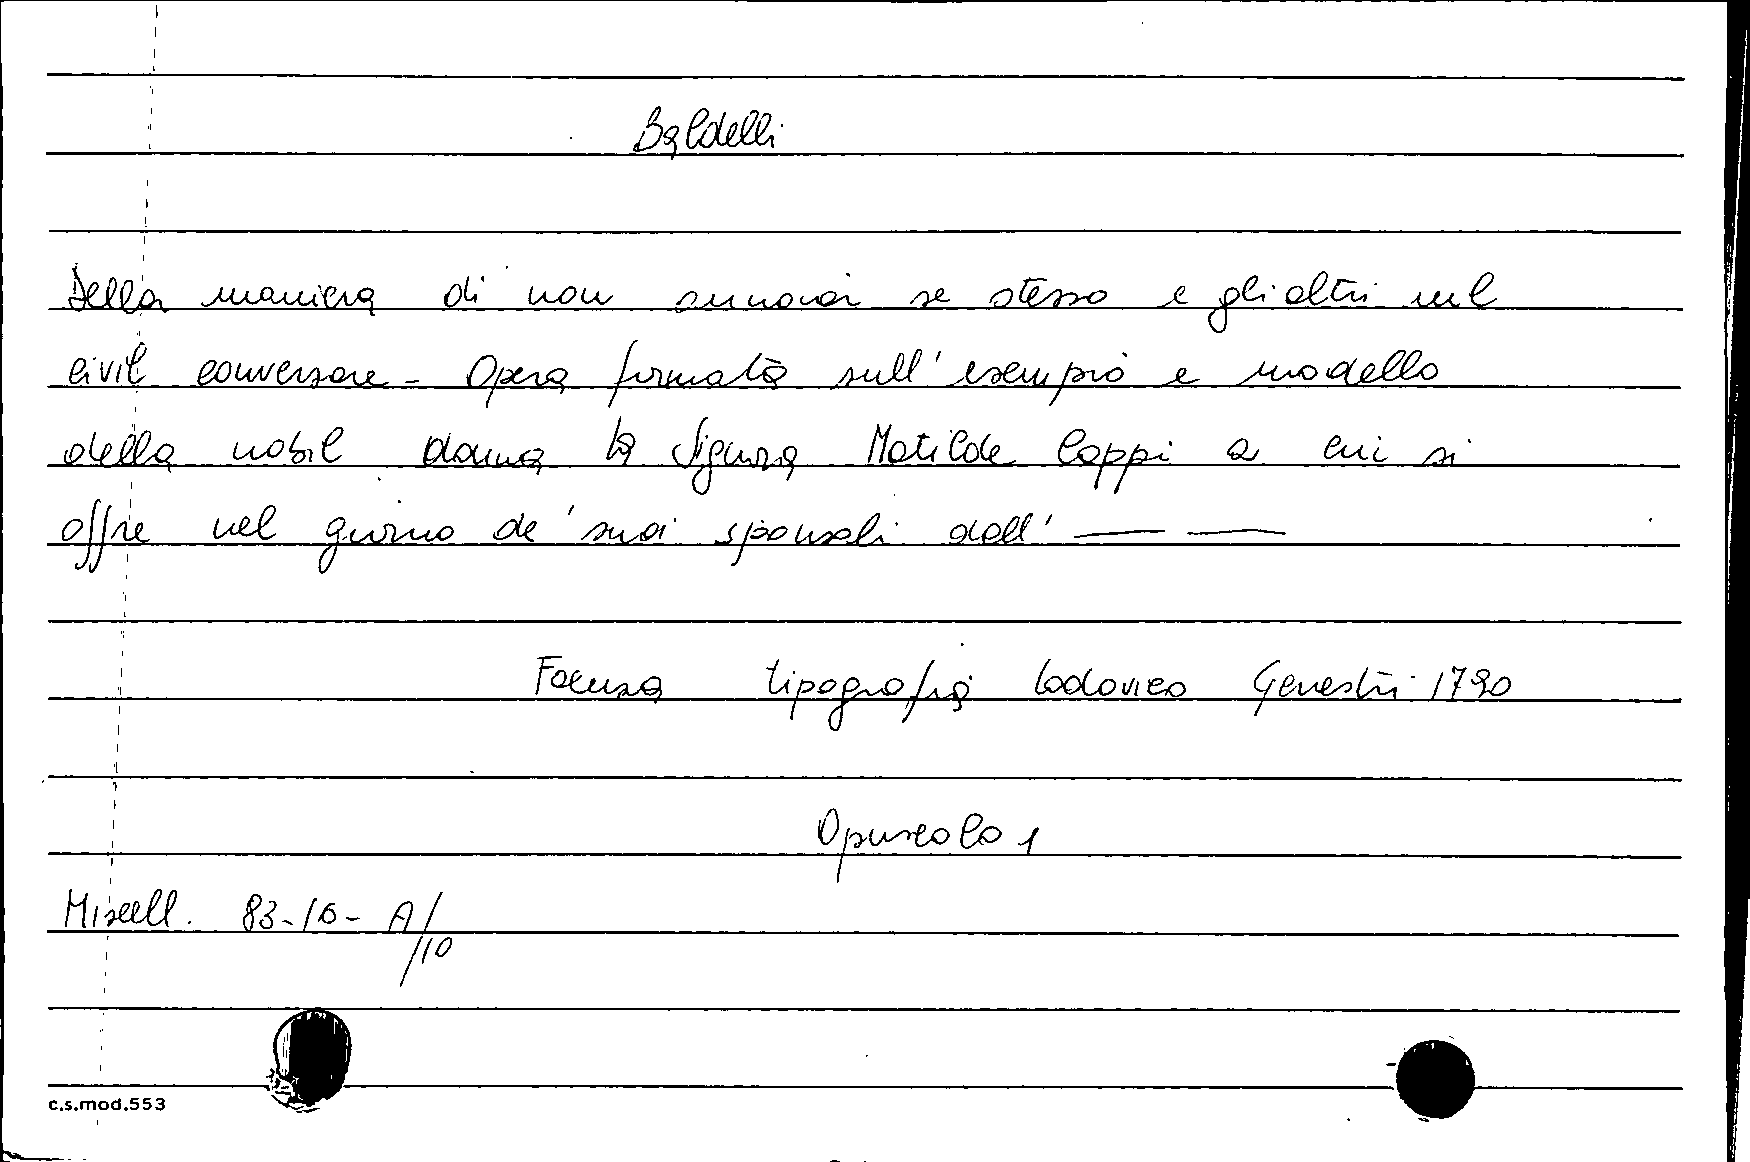 Baldelli
Della maniera di non annoiar se stesso e gli altri nel
civil conversare - Opera formata sull' esempio e modello
della nobil donna la Signora Matilde Cappi a cui si
offre nel giorno de' suoi sponsali dall' — —
Faenza tipografia Lodovico Genestri 1790
Opuscolo 1
Miscell. 83-16- A/10
c.s.mod.553